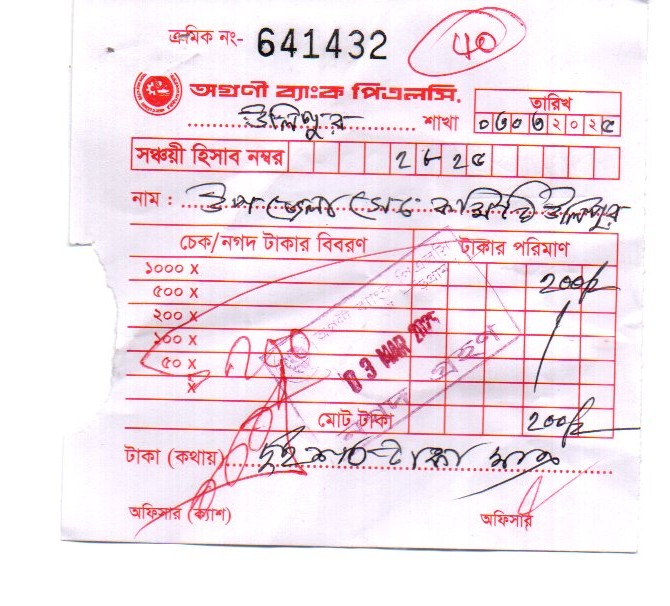 ক্রমিক নং- 641432
40
অগ্রণী ব্যাংক পিএলসি.
উলিপুর শাখা
তারিখ
০৩০৩২০২৫
সঞ্চয়ী হিসাব নম্বর ২৮২৫
নাম : উপজেলা সেচ কমিটি উলিপুর
চেক/নগদ টাকার বিবরণ টাকার পরিমাণ
১০০০ X ২০০/-
৫০০ X
২০০ X
১০০ X
৫০ X
X
03 MAR 2025
মোট টাকা ২০০/-
টাকা (কথায়) দুইশত টাকা মাত্র
অফিসার (ক্যাশ) অফিসার